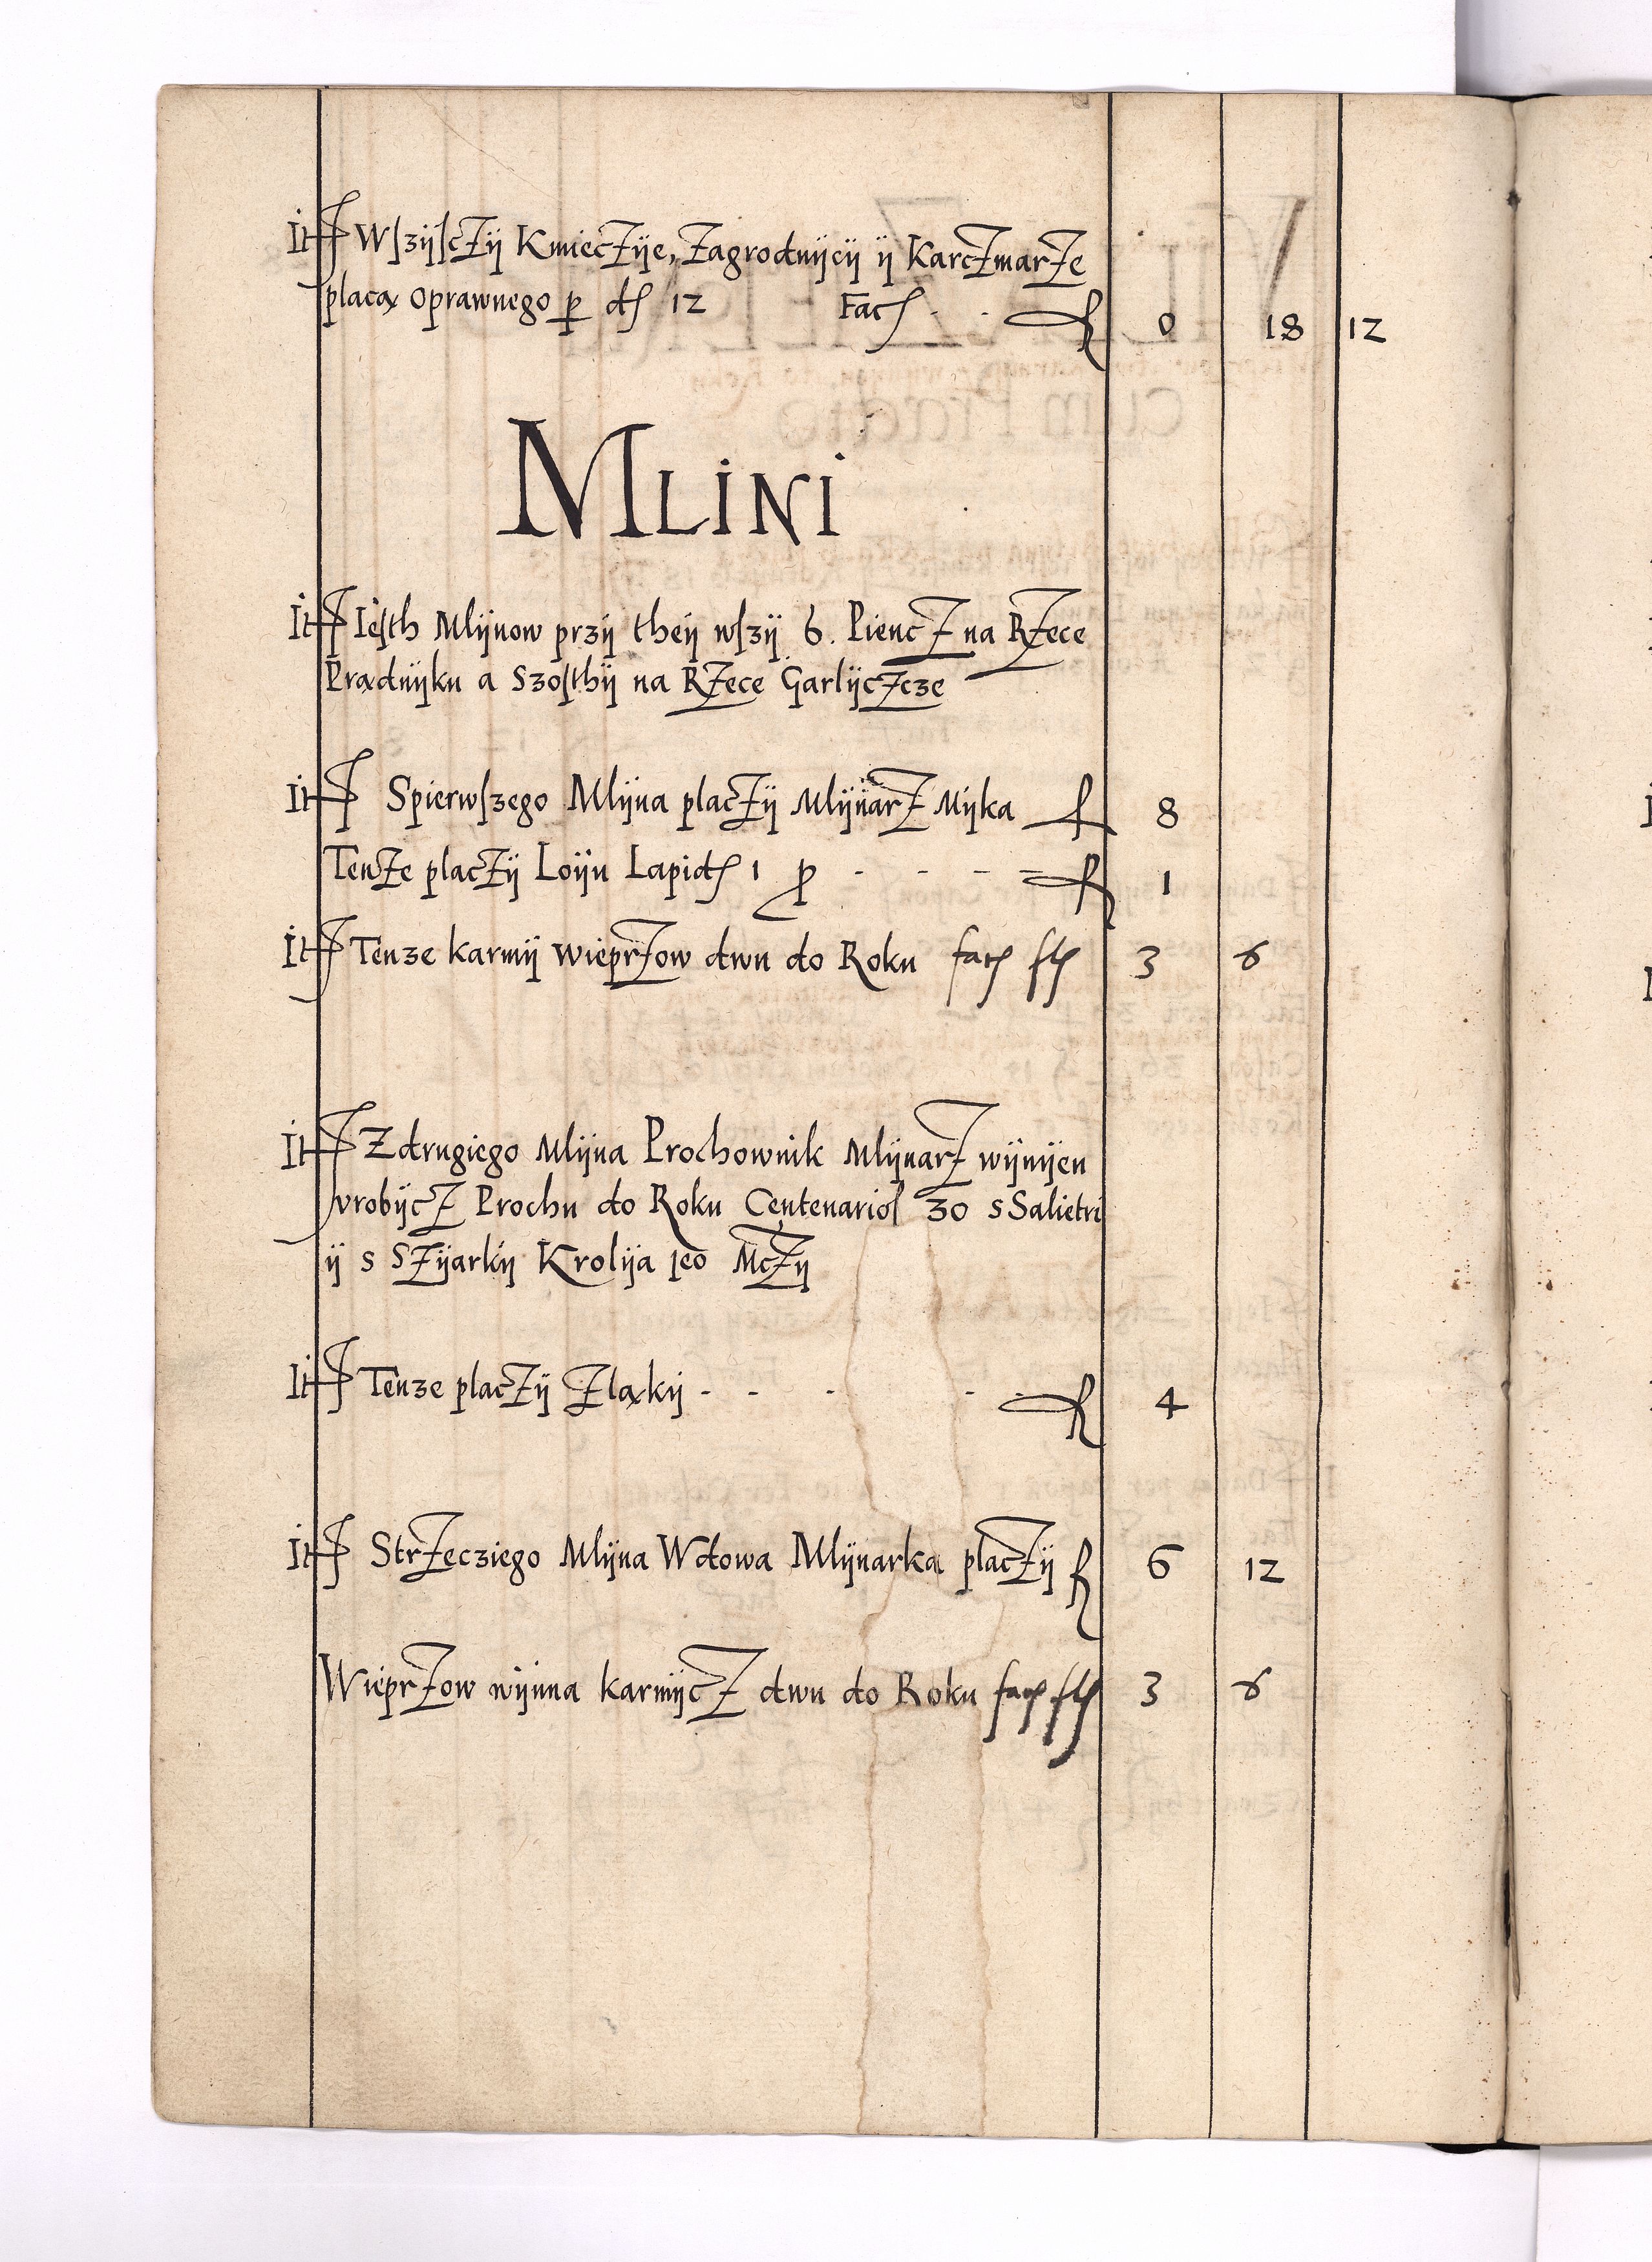 It Wſzÿſczÿ Kmieczÿe, Zagrodnÿcÿ ÿ Karczmarze
placą Oprawnego p 12 Fac 0 18 12
MLINI
It Ieſth Mlÿnow przÿ theÿ wſzÿ 6. Piencz na Rzece
Prądnÿku a Szoſthÿ na Rzece Garlÿczcze
It Spierwſzego Mlÿna placzÿ Mlÿnarz Mÿka 8
Tenze placzÿ Loÿu Lapid 1 p 1
It Tenze karmÿ wieprzow dwu do Roku fac 3 6
It Z drugiego Mlÿna Prochownik Mlÿnarz wÿnÿen
vrobÿcz Prochu do Roku Centenarioſ 30 s Salietri
ÿ s Szÿarkÿ Krolÿa jeo Mczÿ
It Tenze placzÿ Zląkÿ 4
It Strzecziego Mlÿna Wdowa Mlÿnarka placzÿ 6 12
Wieprzow wÿnna karmÿcz dwu do Roku fac 3 6